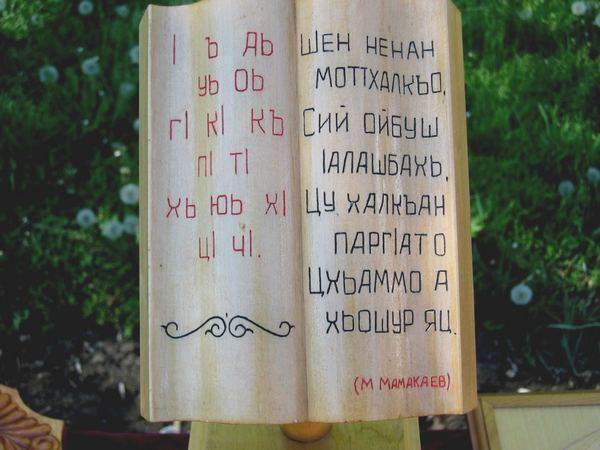 Ӏ Ъ АЬ
УЬ ОЬ
ГӀ КӀ КЪ
ПӀ ТӀ
ХЬ ЮЬ ХӀ
ЦӀ ЧӀ.
ШЕН НЕНАН
МОТТХАЛКЪО,
СИЙ ОЙБУШ
ӀАЛАШБАХЬ,
ЦУ ХАЛКЪАН
ПАРГӀАТО
ЦХЬАММО А
ХЬОШУР ЯЦ.
(М МАМАКАЕВ)